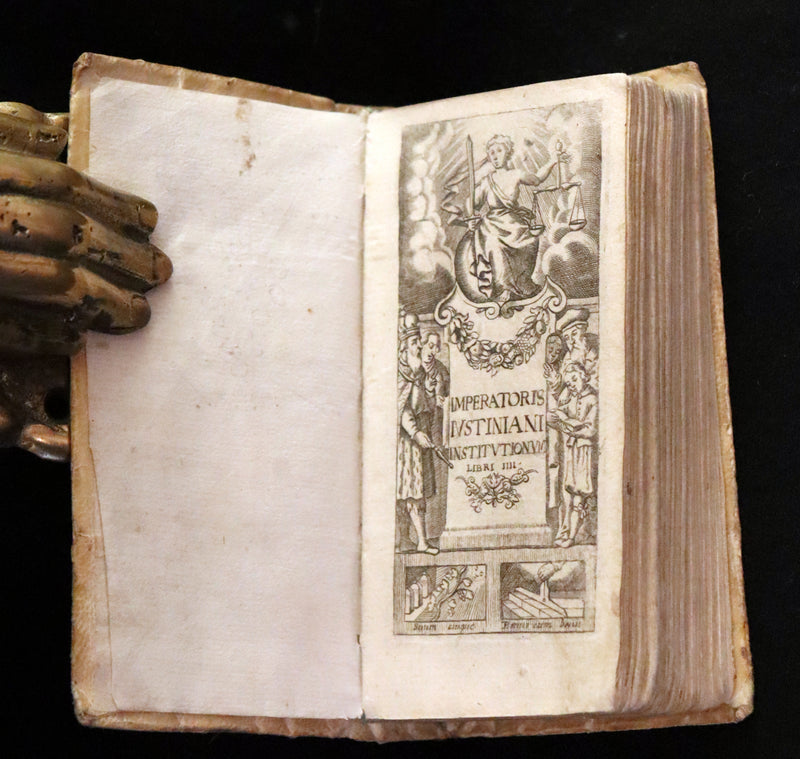 IMPERATORIS
IVSTINIANI
INSTITVTIONVM
LIBRI IIII.